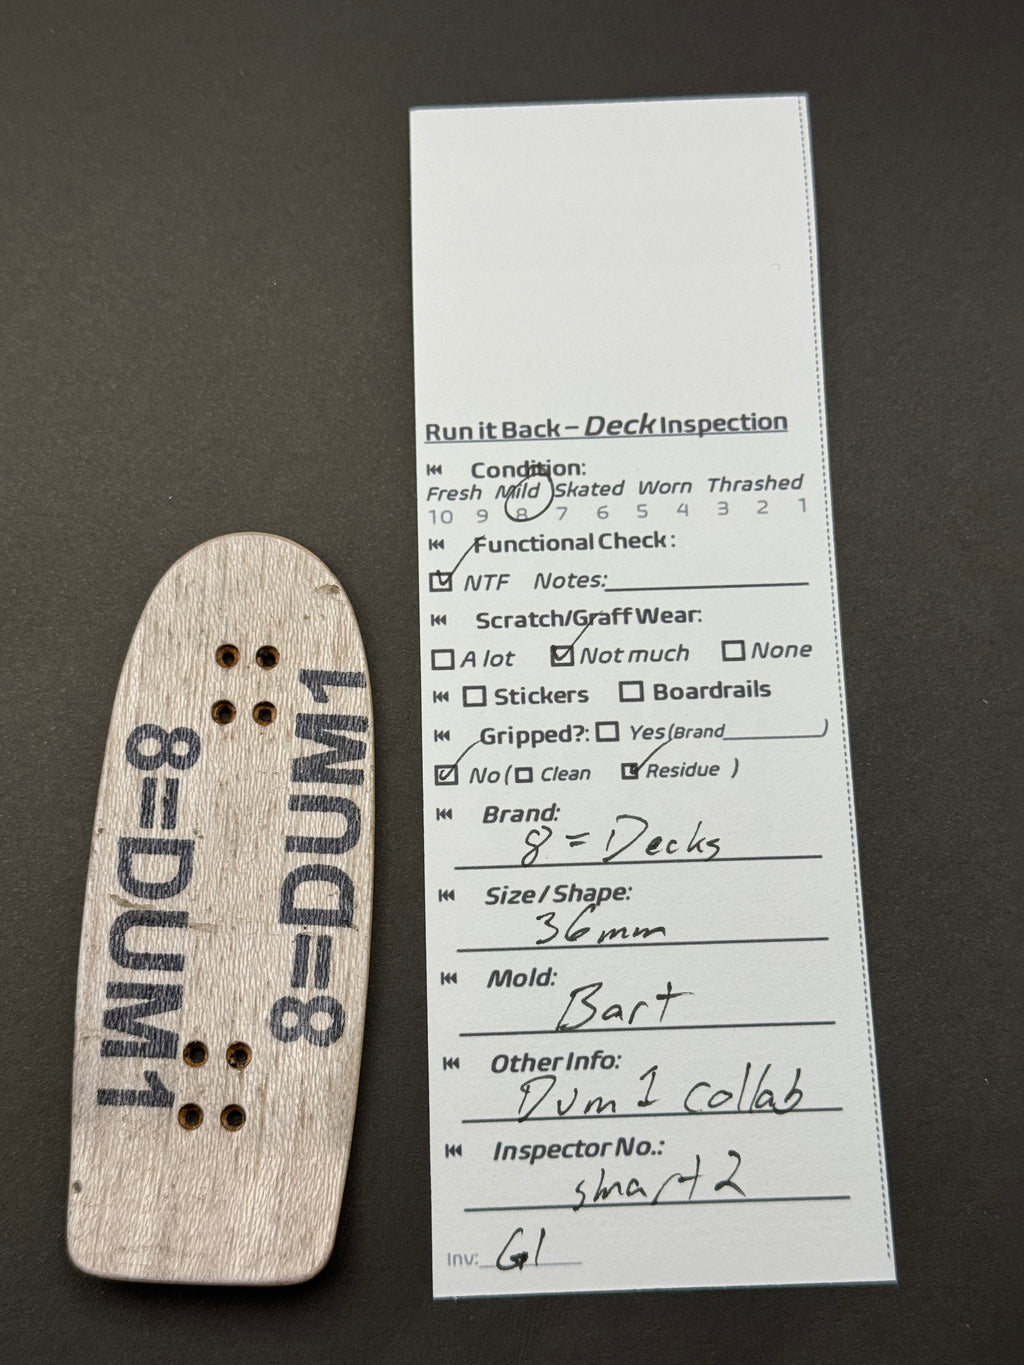 8=DUM1
8=DUM1
Run it Back – Deck Inspection
Condition:
Fresh Mild Skated Worn Thrashed
10 9 8 7 6 5 4 3 2 1
Functional Check:
NTF Notes:
Scratch/Graff Wear:
A lot Not much None
Stickers Boardrails
Gripped?: Yes(Brand )
No ( Clean Residue )
Brand:
8 = Decks
Size / Shape:
36mm
Mold:
Bart
Other Info:
Dum 1 collab
Inspector No.:
smart 2
Inv: G1